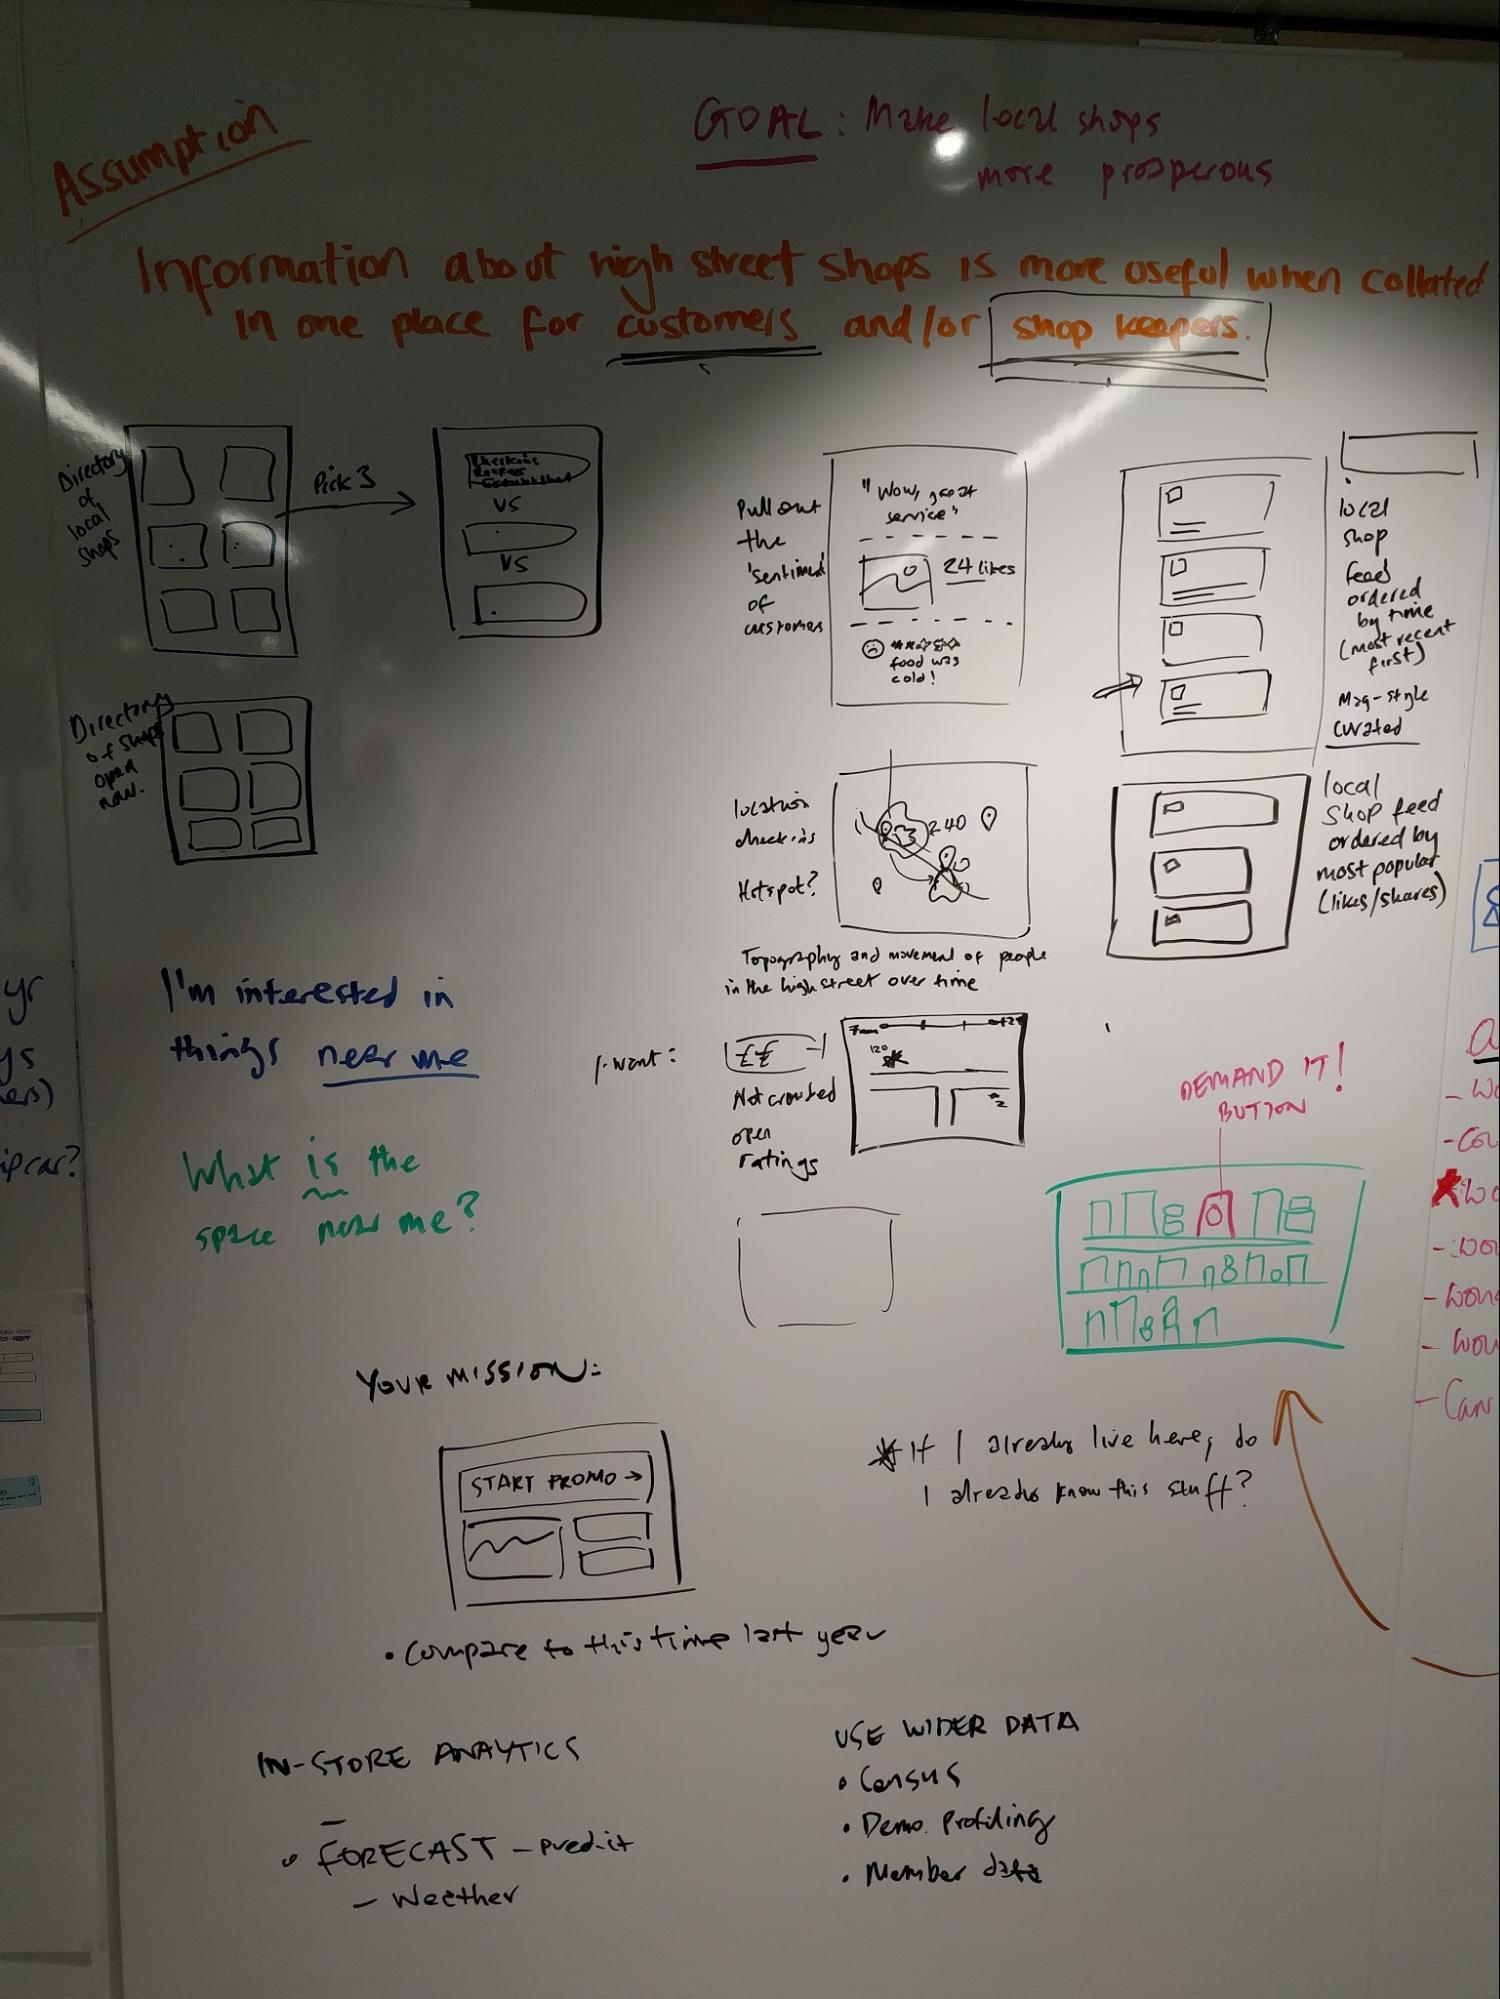 Assumption
GOAL: Make local shops
more prosperous
Information about high street shops is more useful when collated
in one place for customers and/or shop keepers.
Directory
of
local
shops
Pick 3
VS
VS
Directory
of shops
open
now.
Pull out
the
'sentiment'
of
customers
"Wow, great
service"
24 likes
food was
cold!
local
shop
feed
ordered
by time
(most recent
first)
Mag-style
curated
location
check-ins
Hotspot?
240
Topography and movement of people
in the high street over time
local
shop feed
ordered by
most popular
(likes/shares)
I'm interested in
things near me
What is the
space near me?
I want:
££
Not crowded
open
ratings
120
2
DEMAND IT!
BUTTON
YOUR MISSION:
START PROMO →
• Compare to this time last year
* If I already live here, do
I already know this stuff?
IN-STORE ANAYTICS
• FORECAST - predit
- Weather
USE WIDER DATA
• Census
• Demo. Profiling
• Member data
yr
ipcar?
- Can